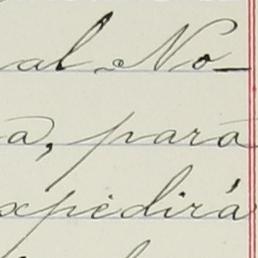 al No_
a, para
xpedirá